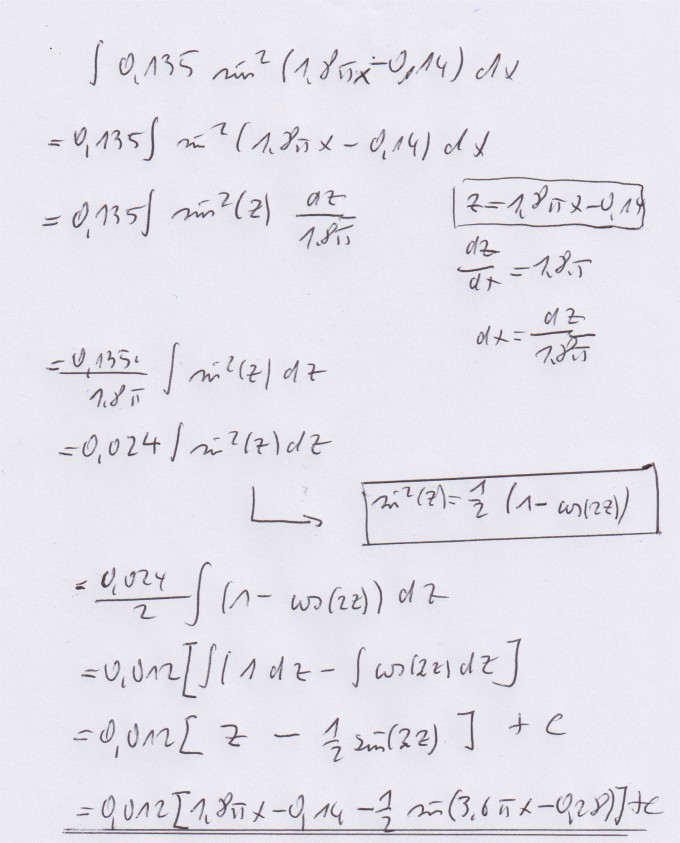 ∫ 0,135 sin²(1,8πx-0,14) dx
= 0,135∫ sin²(1,8πx - 0,14) dx
= 0,135∫ sin²(z) dz/1,8π
z = 1,8πx-0,14
dz/dx = 1,8π
dx = dz/1,8π
= 0,135/1,8π ∫ sin²(z) dz
= 0,024 ∫ sin²(z) dz
sin²(z) = 1/2 (1 - cos(2z))
= 0,024/2 ∫ (1 - cos(2z)) dz
= 0,012 [∫(1 dz - ∫ cos(2z) dz]
= 0,012 [ z - 1/2 sin(2z) ] + C
= 0,012 [1,8πx-0,14 - 1/2 sin(3,6πx-0,28)] + C